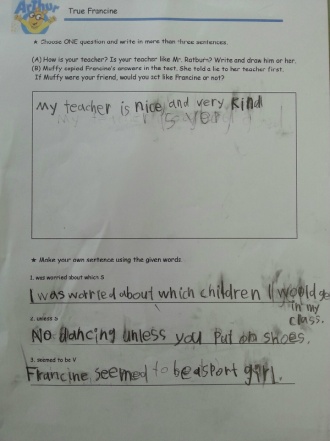 Arthur
True Francine
★ Choose ONE question and write in more than three sentences.
(A) How is your teacher? Is your teacher like Mr. Ratburn? Write and draw him or her.
(B) Muffy copied Francine's answers in the test. She told a lie to her teacher first.
If Muffy were your friend, would you act like Francine or not?
My teacher is nice and very kind
★ Make your own sentence using the given words
1. was worried about which S
I was worried about which children I would go
in my
class.
2. unless S
No dancing unless you put on shoes.
3. seemed to be V
Francine seemed to be a sport girl.